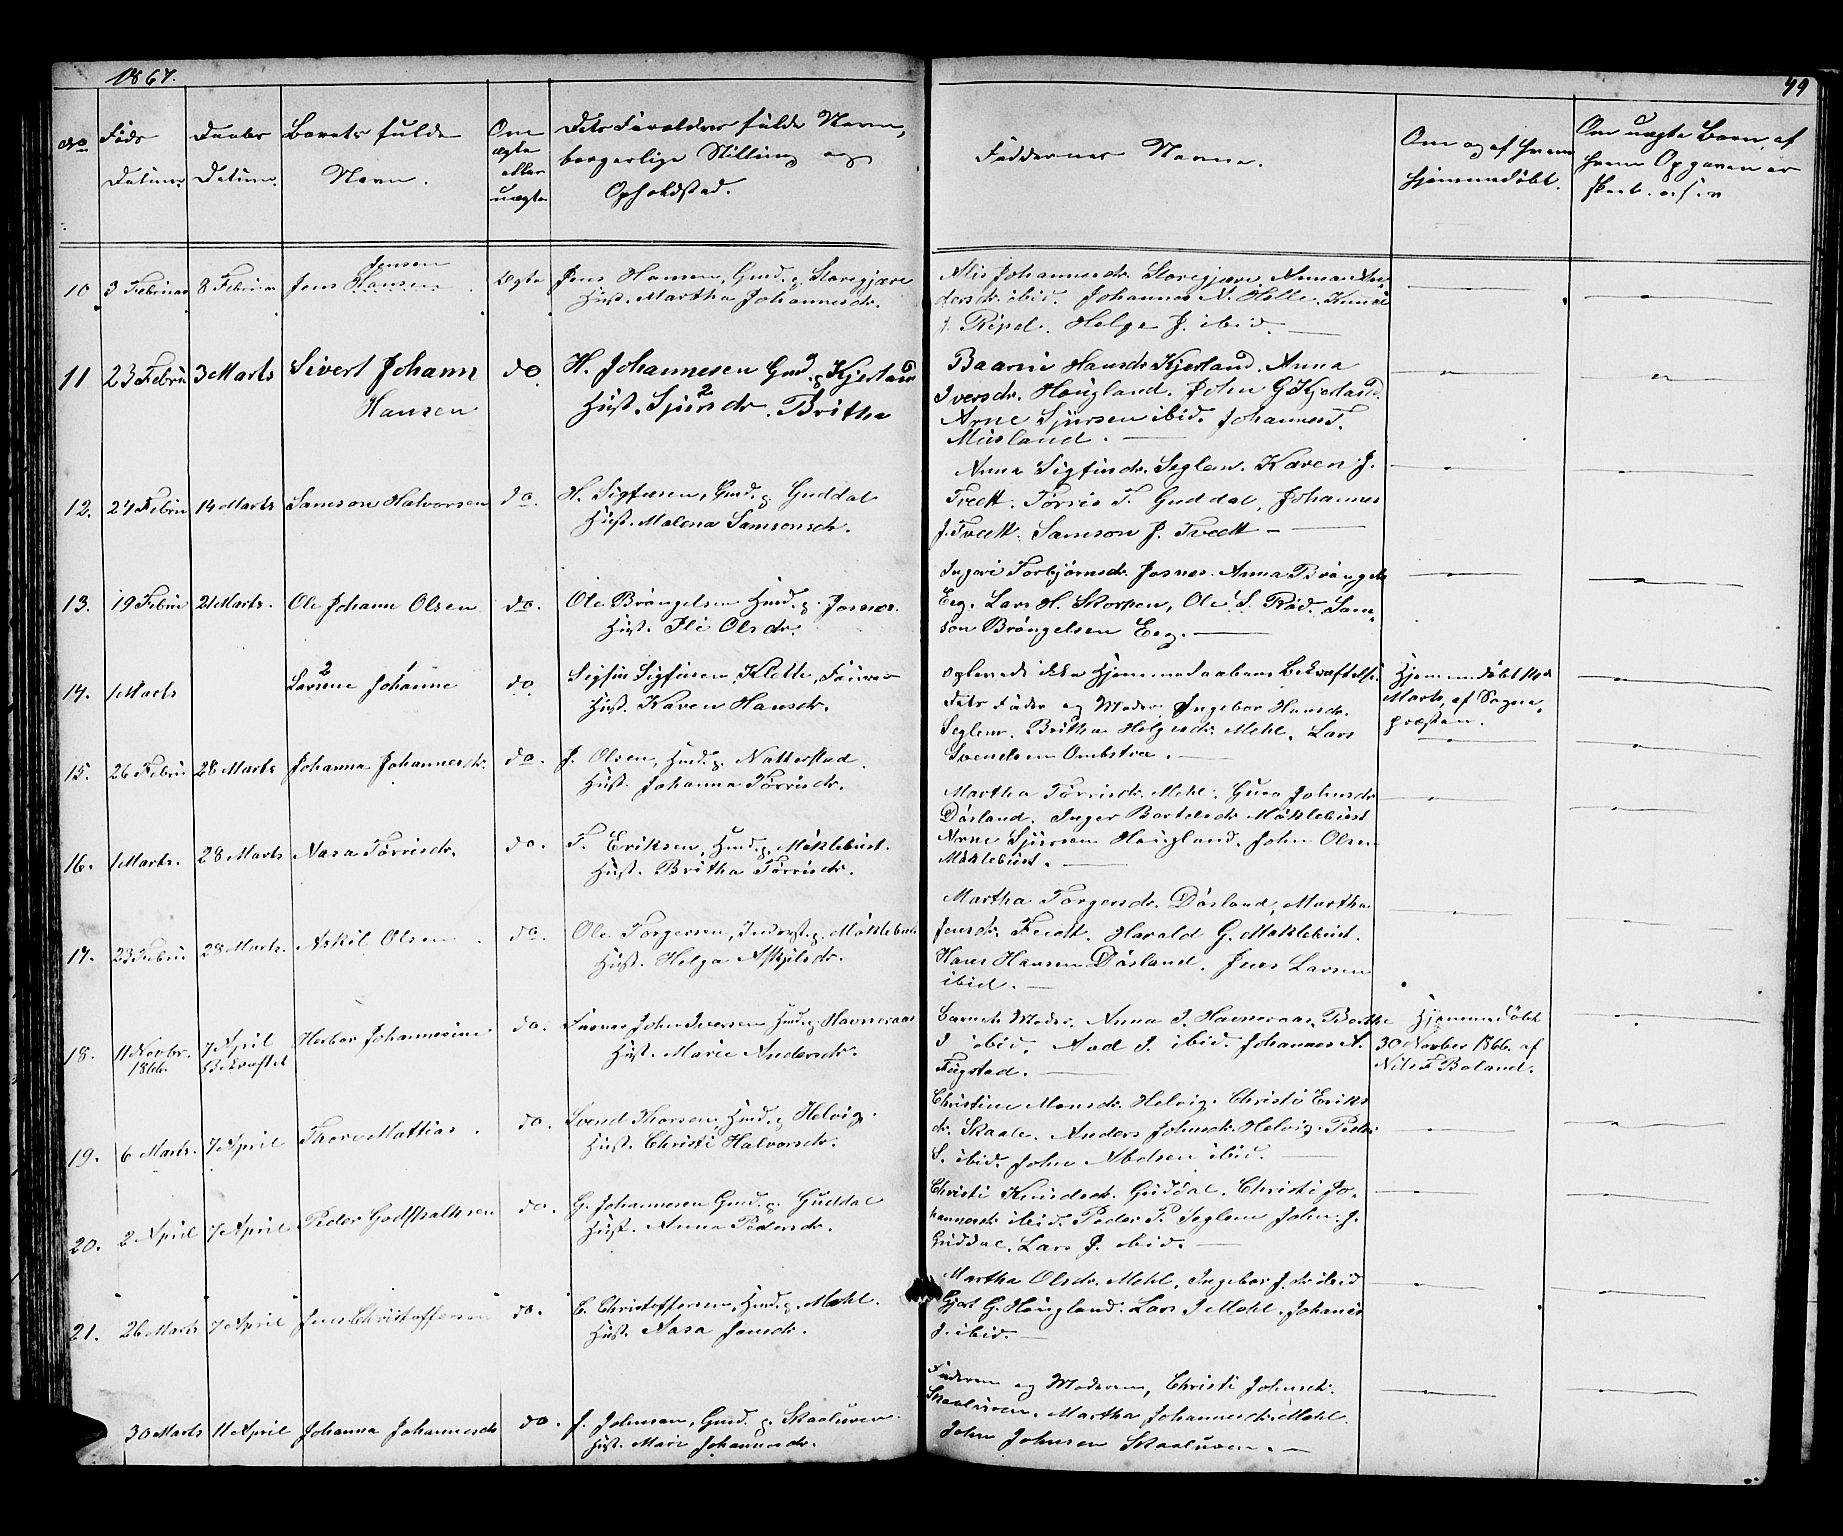 1867.
49
No Føds Datum. Daabs Datum. Barnets fulde Navn. Om ægte eller uægte Dets Forældres fulde Navn, borgerlige Stilling og Opholdsted.
Faddernes Navne. Om og af hvem hjemmedøbt. Om uægte Barn, af hvem Opgaven er skeet. o.s.v
10 3 Februar 8 Februar Jens Hansen Jensen Ægte Jens Hansen, Gmd. p. Storegjære
Hust. Martha Johannesdr.
Johannesdr. Storegjære. Anna An-
dersdr. ibid. Johannes N. Helle. Knud
J. Ripel. Helge J. ibid. —
11 23 Febru 3 Marts Sivert Johann do H. Johannesen Gmd. p. Kjerland
Hansen Hust. Sjursdr. Britha
Baarni Hansdr. Kjerland. Anna
Iversdr. Hougland. John G Kjerland.
Arne Sjursen ibid. Johannes T.
Musland. —
12. 24 Febru 14 Marts Samson Halvorsen do. H. Sigfusen, Gmd. p. Guddal
Hust. Malena Samsonsdr.
Anna Sigfusdr. Seglem. Karen J.
Tvedt. Tørris T. Guddal, Johannes
J. Tvedt. Samson J. Tvedt —
13. 19 Febru 21 Marts. Ole Johann Olsen do. Ole Brøngelsen Hmd. p. Josnæs.
Hust. Eli Olsdr.
Ingeri Torbjørnsdr. Josnes. Anna Brøngels
Eeg. Lars H. Skorpen, Ole S. Rød. Sam-
son Brøngelsen Eeg. —
14. 1 Marts Larsine Johanne do Sigfus Sigfusen Klette,
Hust. Karen Hansdr.
Hjemmedaabens Bekræftelse.
Dets Fader og Moder. Ingebor Hansdr.
Seglem. Britha Helgesdr. Mehl. Lars
Svendsen Ombstva. —
Hjemmedøbt
Marts, af Sogne-
præsten.
15. 26 Febru 28 Marts Johanna Johannesdr. do. J. Olsen, Hmd. p. Natterstad.
Hust. Johanna Tørrisdr.
Martha Tørrisdr. Mehl. Guro Johnsdr
Døsland. Inger Bartelsdr. Møklebust
Arne Sjursen Hougland. John Olsen
Møklebust. —
16. 1 Marts. 28 Marts Aasa Tørrisdr. do. T. Eriksen, Hmd. p. Møklebust.
Hust. Britha Tørrisdr.
Martha Torgersdr. Døsland, Martha
Jensdr. Tvedt. Harald G. Møklebust.
Hans Hansen Døsland. Jens Larsen
ibid. —
17. 23 Febru 28 Marts. Askil Olsen do. Ole Torgersen, Inderst. p. Møklebust
Hust. Helga Askjelsdr.
18. 11 Novbr. 1866. 7 April Bekræftet Herbor Johannesine do. John Iversen Hmd. p. Havneraas
Hust. Marie Andersdr.
Barnets Moder. Anna I. Havneraas. Berthe
I ibid. Aad I. ibid. Johannes A.
Fugstad. —
Hjemmedøbt
30 Novber 1866. af
Nils F Boland.
19. 6 Marts. 7 April Thore Mattias. do. Svend Thorsen, Hmd. p. Helvig.
Hust. Christi Halvorsdr.
Christine Monsdr. Helvig. Christi Eriks
dr. Skaale. Anders Johnsdr. Helvig. Peder
S. ibid. John Abelsen ibid. —
20. 2 April 7 April Peder Godskalksen do. G. Johannesen Gmd. p. Guddal
Hust. Anna Pedersdr.
Christi Knudsdr. Guddal. Christi Jo-
hannesdr. ibid. Peder P. Seglem John J.
Guddal. Lars J. ibid. —
21. 26 Marts 7 April Jens Christoffersen do. C. Christoffersen, Hmd. p. Mehl.
Hust. Aasa Jensdr.
Martha Olsdr. Mehl, Ingebor J. dr. ibid
Gjert G. Hougland. Lars I Mehl. Johannes
J. ibid. —
30 Marts 11 April Johanna Johannesdr do. J. Johnsen, Gmd. p. Skaaluren.
Hust. Mari Johannesdr.
Faderen og Moderen, Christi Johnsdr.
Skaaluren. Martha Johannesdr. Mehl.
John Johnsen Skaaluren. —